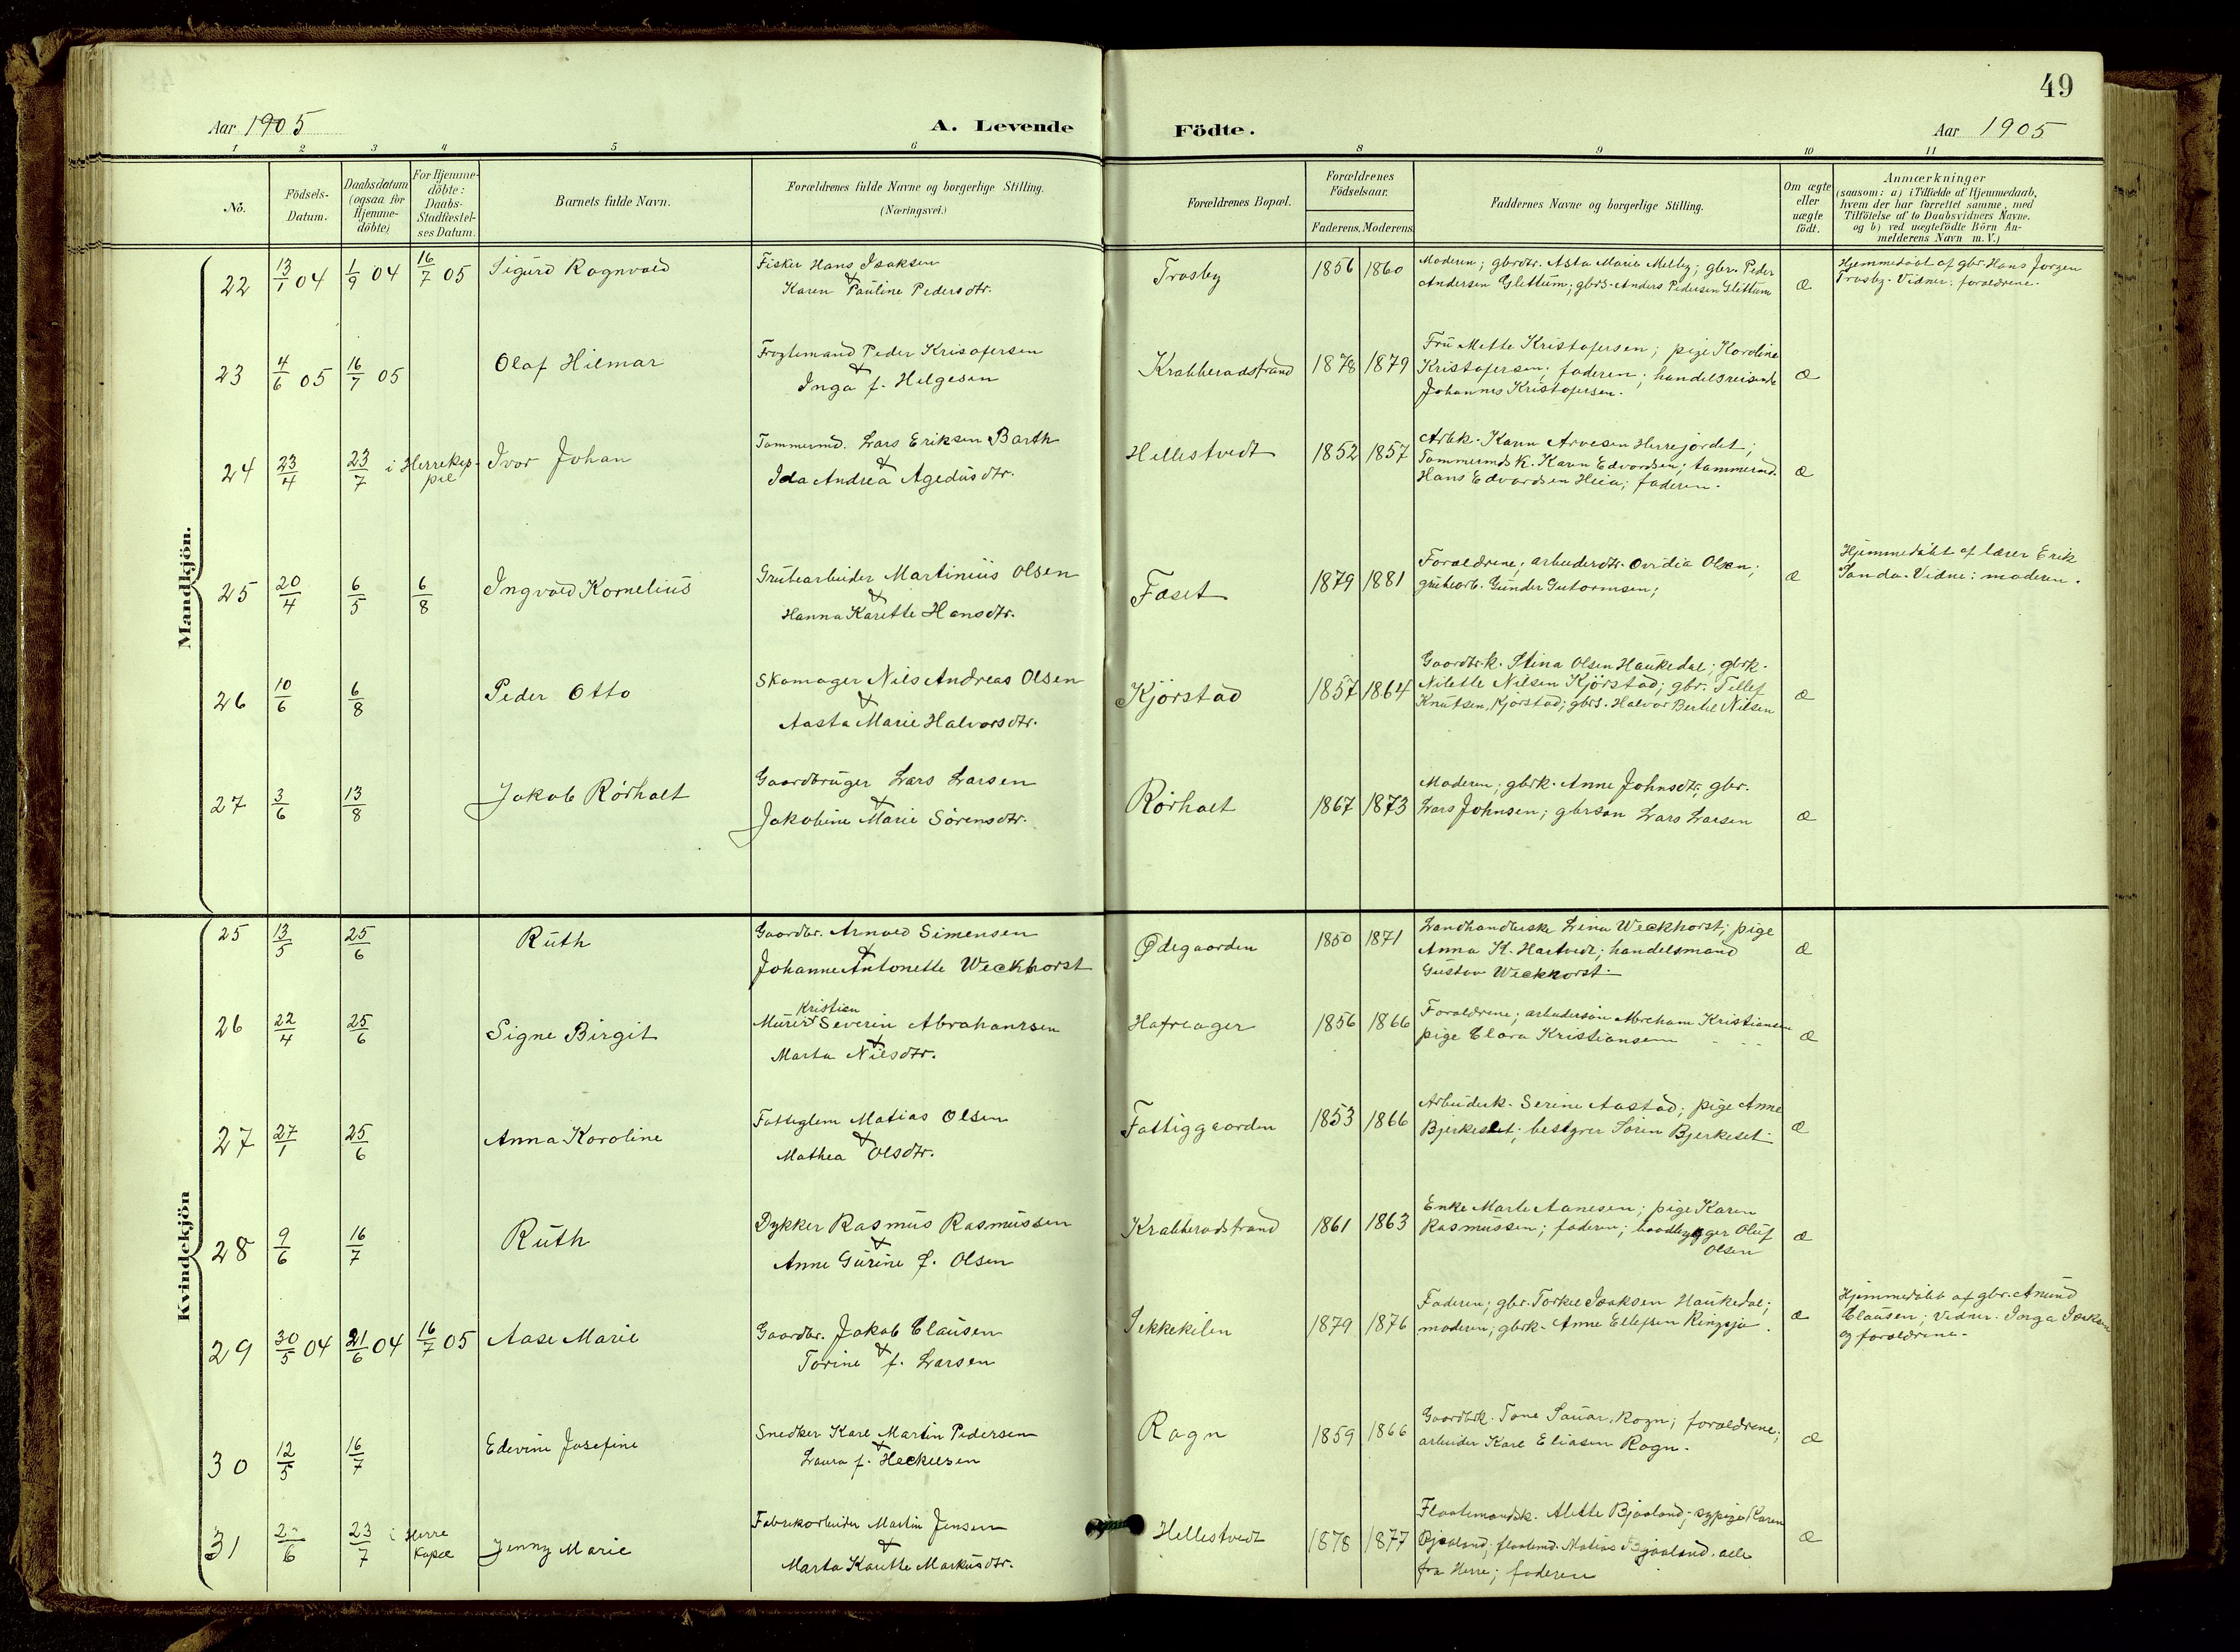 49
Aar 1905
A. Levende
Födte.
Aar 1905
1 2 3 4 5 6 8 9 10 11
No.
Födsels-
Datum.
Daabsdatum
(ogsaa for
Hjemme-
döbte)
For Hjemme-
döbte:
Daabs-
Stadfæstel-
ses Datum.
Barnets fulde Navn.
Forældrenes fulde Navne og borgerlige Stilling.
(Næringsvei.)
Forældrenes Bopæl.
Forældrenes
Födselsaar.
Faderens. Moderens.
Faddernes Navne og borgerlige Stilling.
Om ægte
eller
uægte
födt.
Anmærkninger
(saasom: a) i Tilfælde af Hjemmedaab,
hvem der har forrettet samme, med
Tilföielse af to Daabsvidners Navne.
og b) ved uægtefödte Börn An-
melderens Navn m. V.)
Mandkjön.
22 13/1 04 1/9 04 16/7 05 Sigurd Ragnvald
Fisker Hans Isaksen
&
Karen Pauline Pedersdtr.
Trosby 1856 1860
Moderen; gbrdtr. Asta Marie Melby; gbr. Peder
Andersen Glittum; gbrs. Anders Pedersen Glittum
æ
Hjemmedöbt af gbr. Hans Jörgen
Trosby. Vidner: forældrene.
23 4/6 05 16/7 05 Olaf Hilmar
Peder Krisofersen
&
Inga f. Helgesen
Krabberødstrand 1878 1879
Fru Mette Kristofersen; pige Karoline
Kristofersen; faderen; handelsreisende
Johannes Kristofersen.
æ
24 23/4 23/7 i Herrekap-
pel
Ivar Johan
Tømmermd. Lars Eriksen Barth
&
Ida Andrea Agediusdtr.
Hellestvedt 1852 1857
Arbk. Karen Arvesen Herrejordet;
Tømmermds k. Karen Edvardsen; tømmermd.
Hans Edvardsen Heia; faderen.
æ
25 20/4 6/5 6/8 Ingvald Kornelius
Grubearbeider Martinius Olsen
&
Hanna Karette Hansdtr.
Foset 1879 1881
Forældrene; arbeiderdtr. Ovidia Olsen;
grubearb. Gunder Gutormsen;
æ
Hjemmedöbt af lærer Erik
Sanda. Vidne: moderen.
26 10/6 6/8 Peder Otto
Skomager Nils Andreas Olsen
&
Aasta Marie Halvorsdtr.
Kjörstad 1857 1864
Gaardbr.k. Stina Olsen Haukedal; gbrk.
Nilette Nilsen Kjörstad; gbr. Tellef
Knutsen, Kjörstad; gbrs. Halvor Bertel Nilsen
æ
27 3/6 13/8 Jakob Rörholt
Gaardbruger Lars Larsen
&
Jakobine Marie Sörensdtr.
Rörholt 1867 1873
Moderen; gbrk. Anne Johnsdtr; gbr.
Lars Johnsen; gbrsön Lars Larsen
æ
Kvindekjön
25 13/5 25/6 Ruth
Gaardbr. Arnold Simensen
&
Johanne Antonette Weckhorst
Ødegaarden 1850 1871
Landhandlerske Lina Weckhorst; pige
Anna K. Hartvedt; handelsmand
Gustav Weckhorst.
æ
26 22/4 25/6 Signe Birgit
Kristian
Murer Severin Abrahamsen
&
Marta Nilsdtr.
Hafreager 1856 1866
Forældrene; arbeidersön Abraham Kristiansen
pige Clara Kristiansen
æ
27 27/1 25/6 Anna Karoline
Fattiglem Matias Olsen
&
Mathea Olsdtr.
Fattiggaarden 1853 1866
Arbeiderk. Serine Aastad; pige Anne
Bjerkeset; bestyrer Sören Bjerkeset
æ
28 9/6 16/7 Ruth
Dykker Rasmus Rasmussen
&
Anne Gurine f. Olsen
Krabberødstrand 1861 1863
Enke Marte Aanesen; pige Karen
Rasmussen; faderen; baadbygger Oluf
Olsen
æ
29 30/5 04 21/6 04 16/7 05 Aase Marie
Gaardbr. Jakob Clausen
&
Torine f. Larsen
Sekkekilen 1879 1876
Faderen; gbr. Torkel Isaksen Haukedal;
moderen; gbrk. Anne Ellefsen Ringsjö.
æ
Hjemmedöbt af gbr. Anund
Clausen; Vidner. Inga Isaksen
og forældrene.
30 12/5 16/7 Edevine Josefine
Snedker Karl Martin Pedersen
&
Laura f.
Rogn 1859 1866
Gaardbrk. Tone Sauar, Rogn; forældrene;
arbeider Karl Eliasen Rogn.
æ
31 2/6 23/7 i Herre
Kapel
Jenny Marie
Fabrikarbeider Martin Jensen
&
Marta Karette Markusdtr.
Hellestvedt 1878 1877
Flaatemandsk. Alette Bjaaland; sypige Karen
Bjaaland; flaatemd. Matias Bjaaland. alle
fra Herre; faderen
æ